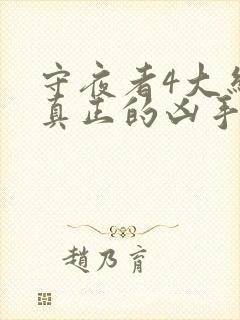 守夜者4大结
真正的凶手
趙乃育